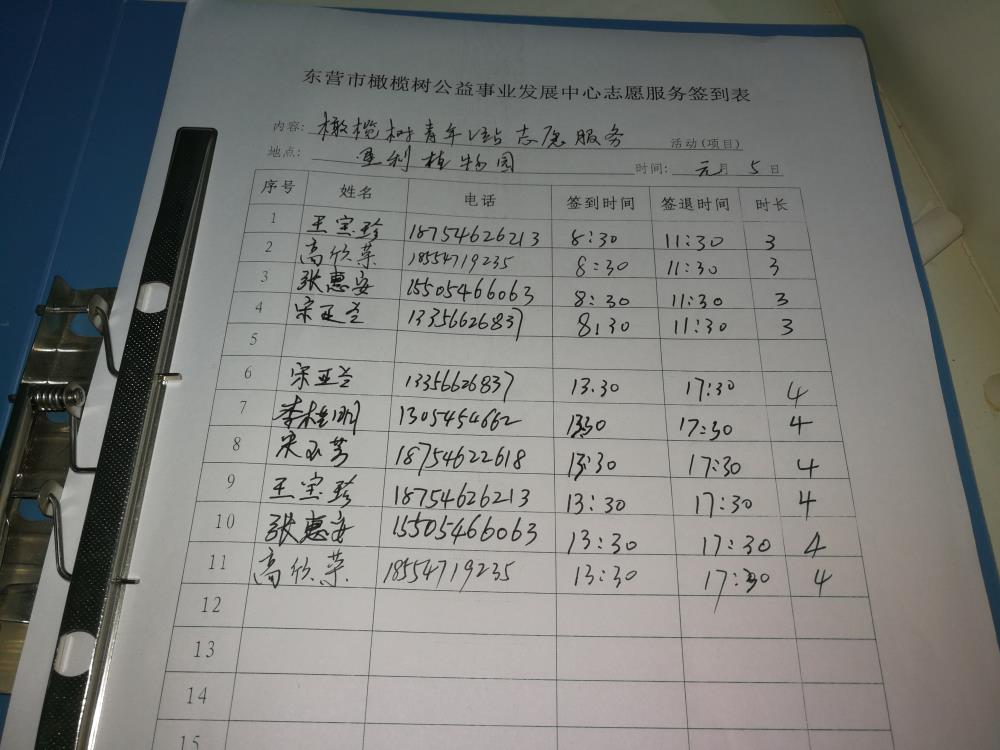 东营市橄榄树公益事业发展中心志愿服务签到表
内容: 橄榄树青年V站志愿服务 活动(项目)
地点: 垦利植物园 时间: 元月 5 日
序号 姓名 电话 签到时间 签退时间 时长
1 王宝珍 18754626213 8:30 11:30 3
2 高欣荣 18554719235 8:30 11:30 3
3 张惠安 15505466063 8:30 11:30 3
4 宋亚兰 13356626837 8:30 11:30 3
5
6 宋亚兰 13356626837 13.30 17:30 4
7 李桂明 1305454662 13:30 17:30 4
8 宋玉芳 18754622618 13:30 17:30 4
9 王宝珍 18754626213 13:30 17:30 4
10 张惠安 15505466063 13:30 17:30 4
11 高欣荣 18554719235 13:30 17:30 4
12
13
14
15